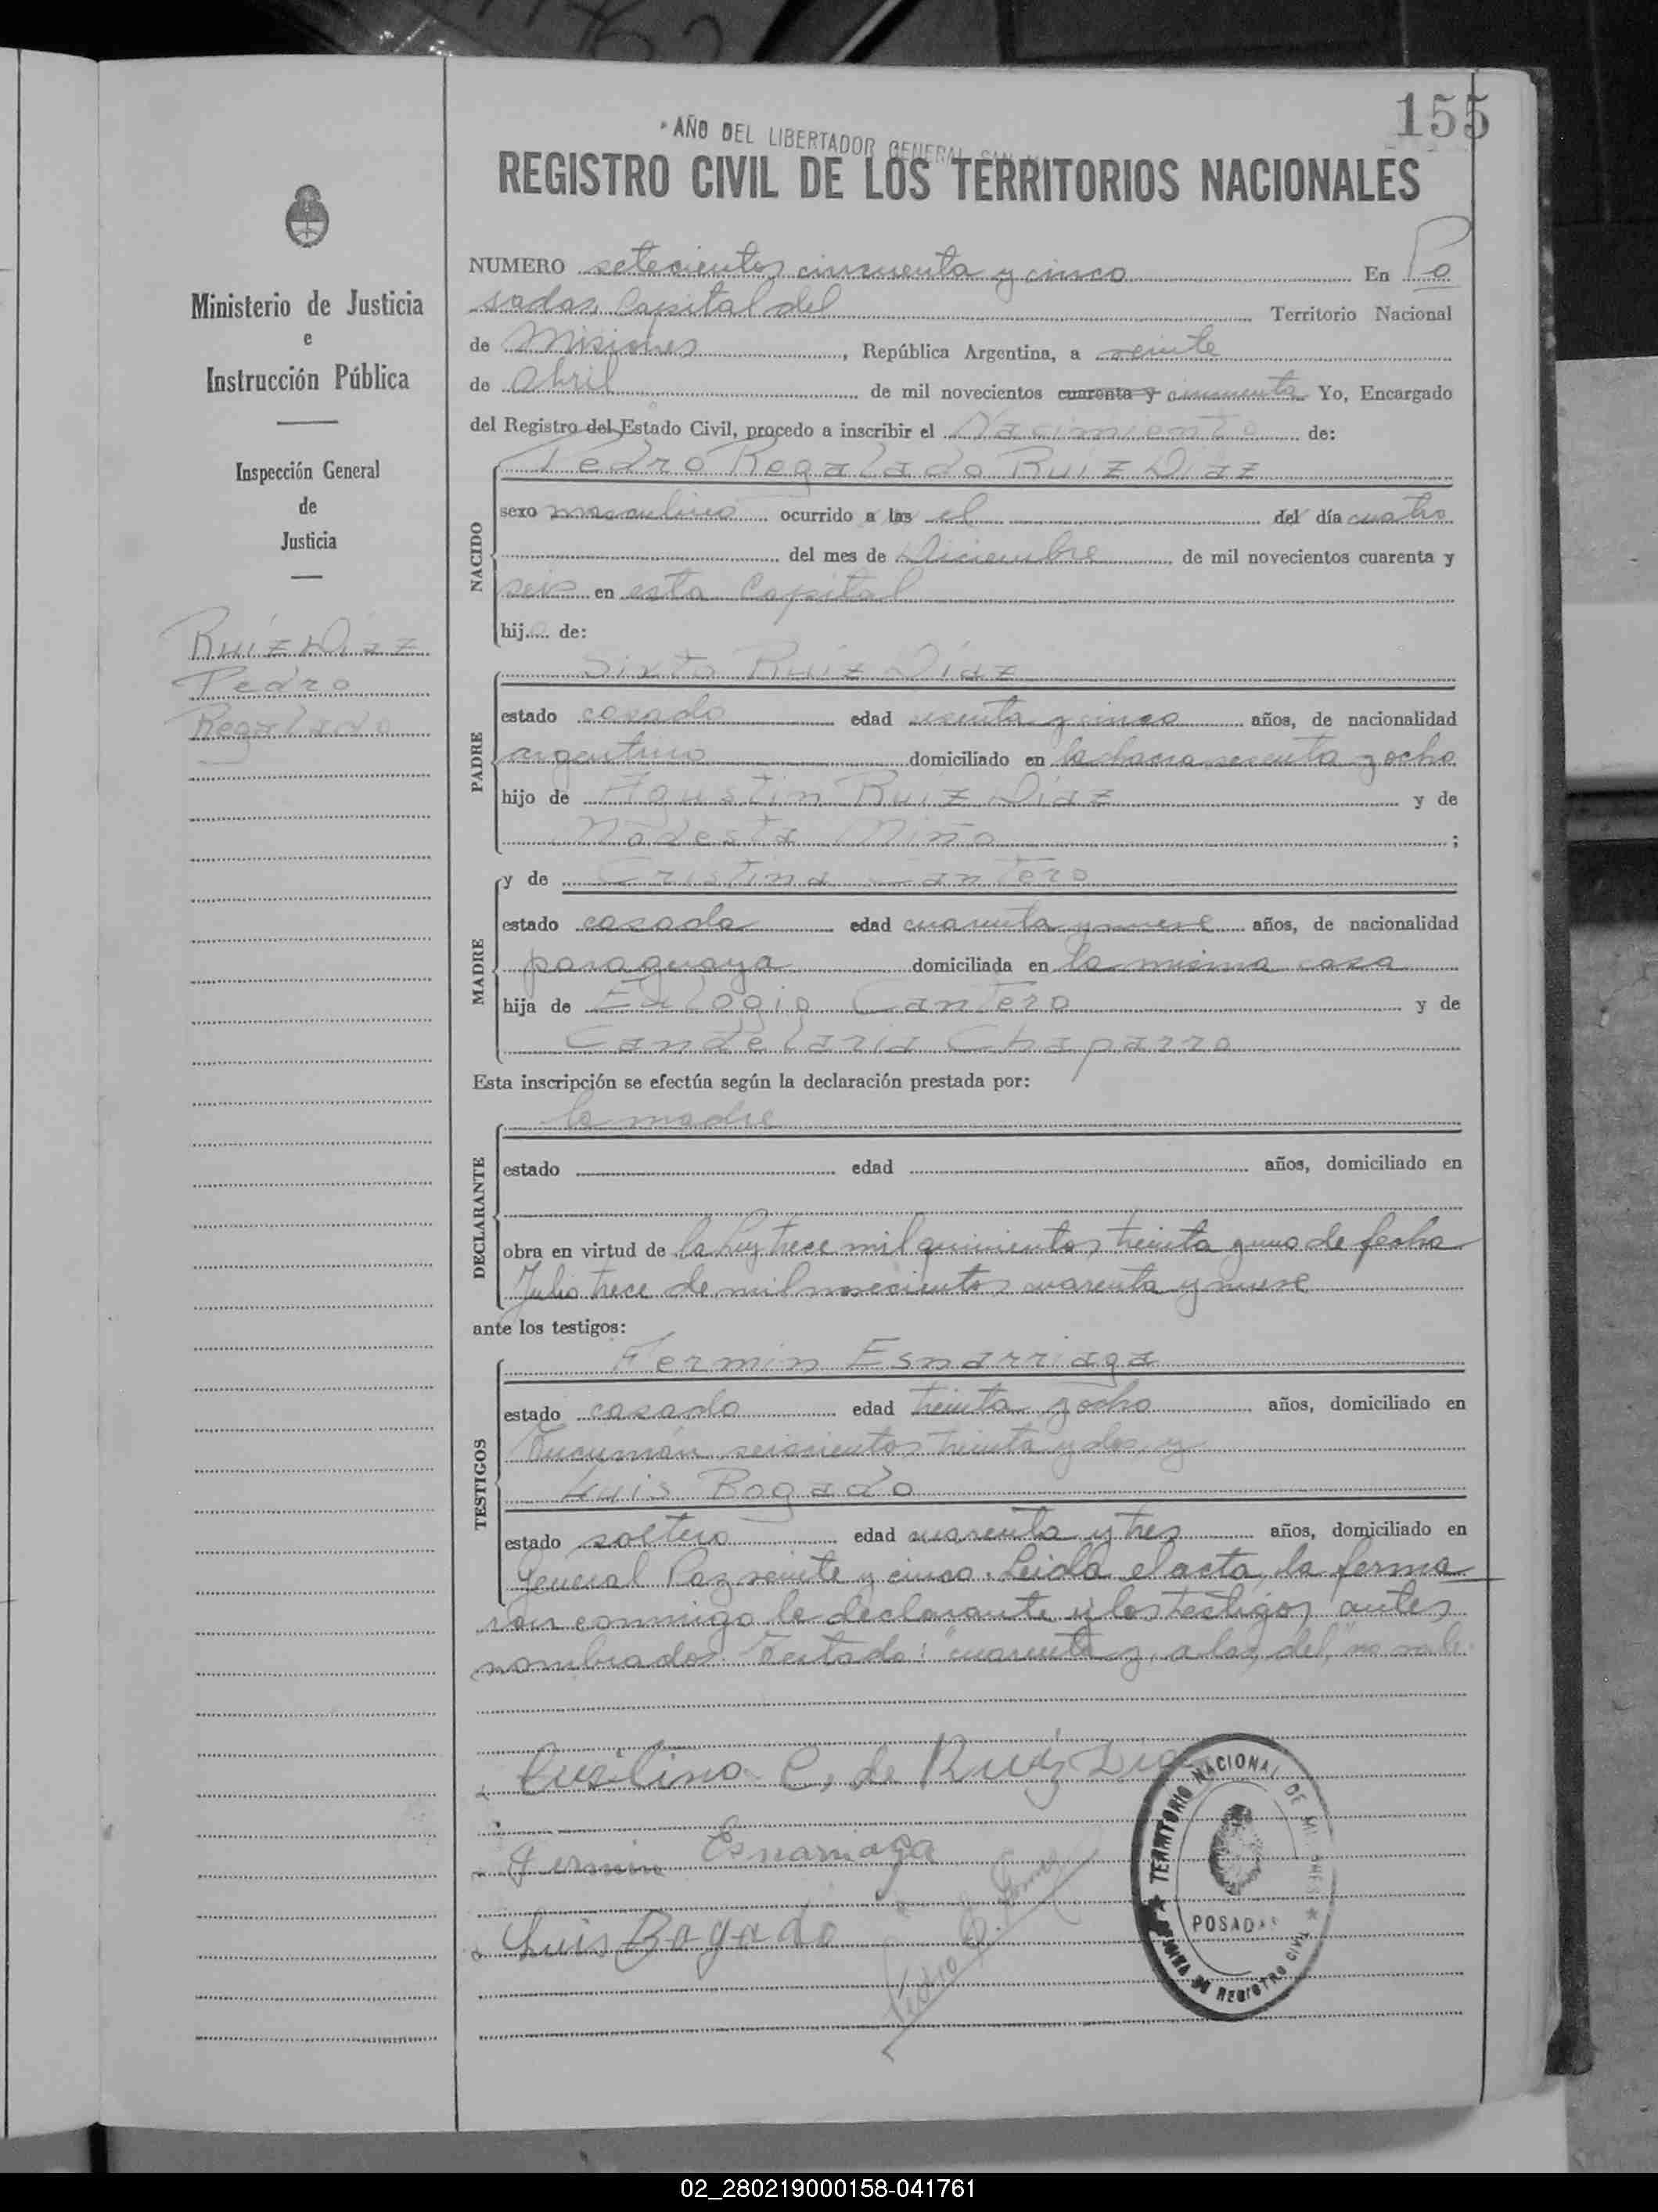 155
AÑO DEL LIBERTADOR GENERAL
REGISTRO CIVIL DE LOS TERRITORIOS NACIONALES
Ministerio de Justicia
e
Instrucción Pública
Inspección General
de
Justicia
Ruíz Díaz
Pedro
Regalado
NUMERO setecientos cincuenta y cinco En Po
sadas, Capital del Territorio Nacional
de Misiones, República Argentina, a veinte
de Abril de mil novecientos cuarenta y cincuenta Yo, Encargado
del Registro del Estado Civil, procedo a inscribir el Nacimiento de:
Pedro Regalado Ruiz Diaz
NACIDO
sexo masculino ocurrido a las el del día cuatro
del mes de Diciembre de mil novecientos cuarenta y
seis en esta Capital
hijo de:
PADRE
Sixto Ruiz Díaz
estado casado edad y cinco años, de nacionalidad
argentino domiciliado en la chacra sesenta y ocho
hijo de Agustin Ruiz Díaz y de
Modesta Miño;
MADRE
y de Cristina Cantero
estado casada edad cuarenta y nueve años, de nacionalidad
paraguaya domiciliada en la misma casa
hija de Eulogio Cantero y de
Candelaria Chaparro
Esta inscripción se efectúa según la declaración prestada por:
DECLARANTE
la madre
estado edad años, domiciliado en
obra en virtud de la ley trece mil quinientos treinta y uno de fecha
Julio trece de mil novecientos cuarenta y nueve
ante los testigos:
TESTIGOS
Fermín Esnarriaga
estado casado edad treinta y ocho años, domiciliado en
Tucumán seiscientos treinta y dos y
Luis Bogado
estado soltero edad cuarenta y tres años, domiciliado en
General Paz veinte y cinco. Leida el acta, la firma
ron conmigo la declarante y los testigos antes
nombrados. Testado: "cuarenta y, a las, del," no vale.
C. de Ruiz Diaz
Fermin Esnarriaga
Luis Bogado
Pedro Gomez
TERRITORIO NACIONAL DE MISIONES
POSADAS
REGISTRO CIVIL
02_280219000158-041761